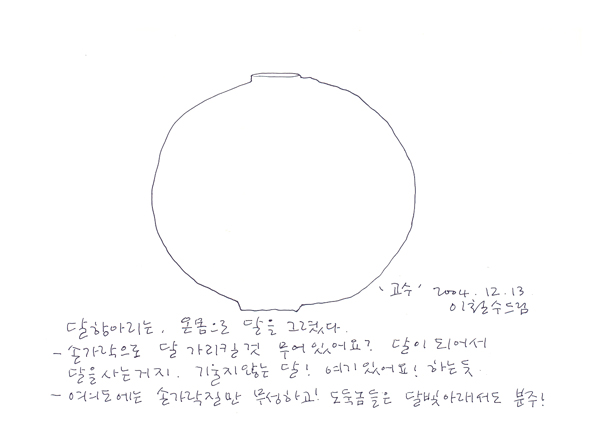 '고수' 2004.12.13
이철수드림
달항아리는, 온몸으로 달을 그렸다.
- 손가락으로 달 가리킬것 무어있어요? 달이 되어서
달을 사는거지. 기울지않는 달! 여기있어요! 하는듯.
- 여의도에는 손가락질만 무성하고! 도둑놈들은 달빛아래서도 분주!